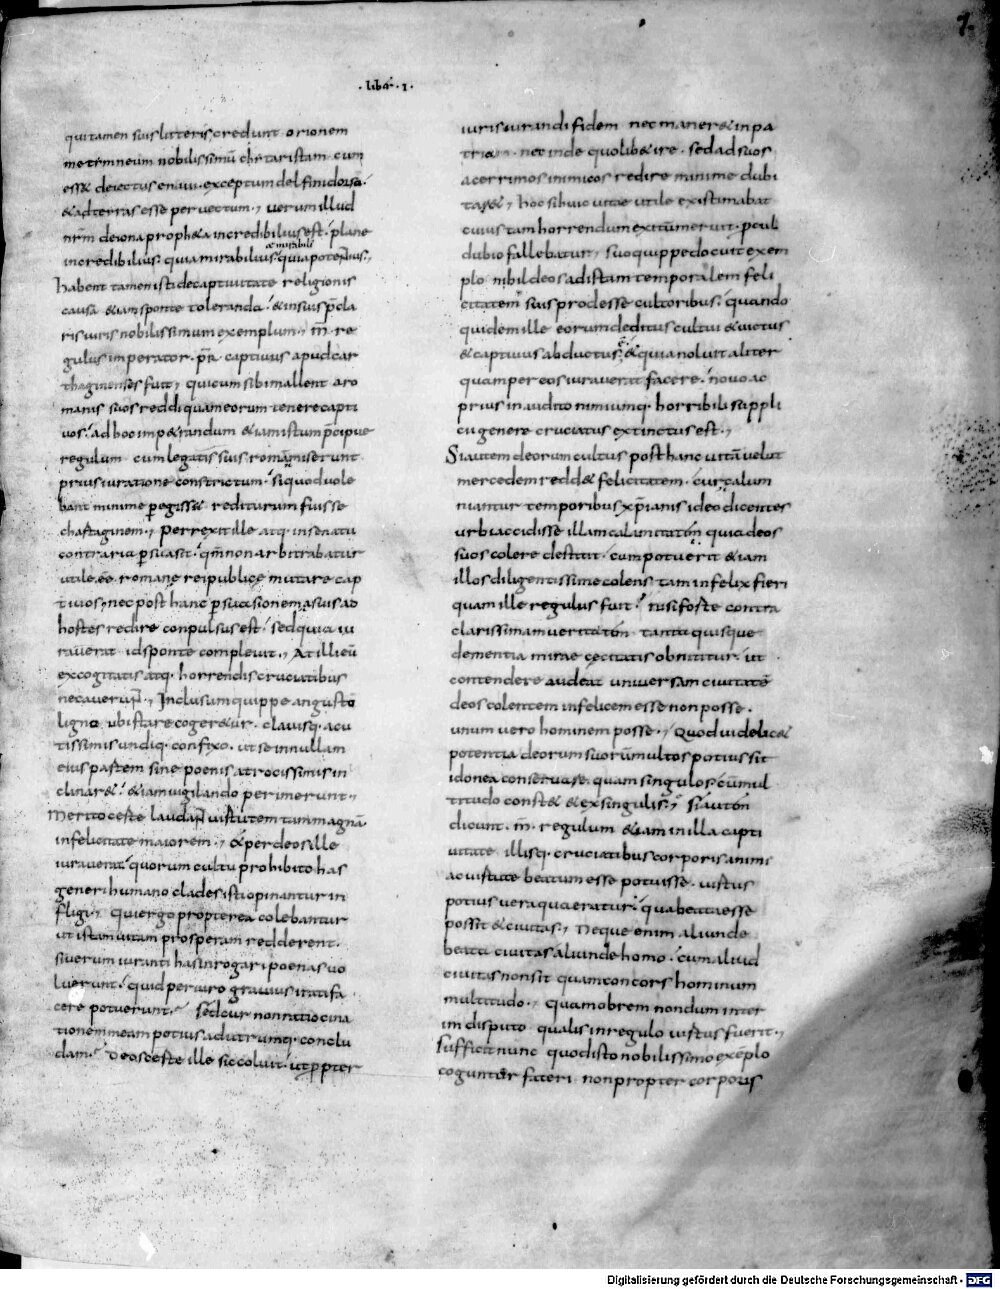 7
· liber · 1 ·
qui tamen suis litteris credunt orionem
metemneum nobilissimū citharistam cum
ess& deiectus enaui. exceptum delfini dorso.
& ad terras esse peruectum; uerum illud
nrm de iona proph&a incredibilius est. plane
ac mirabili
incredibilius. quia mirabilius. quia potentius;
habent tamen isti de captiuitate religionis
causa &iam sponte toleranda. & in suis pcla
ris uiris nobilissimum exemplum; m̄. re
gulus imperator. p̄R. captiuus apud car
thaginenses fuit; qui cum sibi mallent a ro
manis suos reddi quam eorum tenere capti
uos. ad hoc imp&randum &iam istum p̄cipue
regulum cum legatis suis romā miserunt
prius iuratione constrictum. si quod uole
bant minime pegiss& rediturum fuisse
chartaginem; perrexit ille atq. in senatu
contraria psuasit. qm̄ non arbitrabatur
utile. eē. romane reipublicę mutare cap
tiuos; nec post hanc psuasionem a suis ad
hostes redire conpulsus est. sed quia iu
rauerat id sponte compleuit; At illi eū
excogitatis atq. horrendis cruciatibus
necauerunt; Inclusum quippe angusto
ligno ubi stare coger&ur. clauisq. acu
tissimis undiq. confixo. ut se in nullam
eius partem sine poenis atrocissimis in
clinar&. &iam uigilando perimerunt;
Merito certe laudant uirtutem tam magnā
infelicitate maiorem; & per deos ille
iurauerat quorum cultu prohibito has
generi humano clades isti opinantur in
fligi; qui ergo propterea colebantur
ut istam uitam prosperam redderent.
si uerum iuranti has inrogari poenas uo
luerunt. quid periuro grauius irati fa
cere potuerunt. sed cur non ratiocina
tionem meam potius ad utrumq. conclu
dam. deos certe ille sic coluit. ut ppter
iurisiurandi fidem nec maner& in pa
tria. nec inde quolib& ire. sed ad suos
acerrimos inimicos redire minime dubi
tar&; hoc si huic uitae utile existimabat
cuius tam horrendum exitū meruit. pcul
dubio fallebatur; suo quippe docuit exem
plo nihil deos ad istam temporalem feli
citatem suis prodesse cultoribus. quando
quidem ille eorum deditus cultui & uictus
& captiuus abductus. & quia noluit aliter
quam per eos iurauerat facere. nouo ac
prius inaudito nimiumq. horribili suppli
cii genere cruciatus extinctus est;
Si autem deorum cultus post hanc uitā uelut
mercedem redd& felicitatem. cur calum
niantur temporibus xp̄ianis ideo dicentes
urbi accidisse illam calamitatem quia deos
suos colere destitit. cum potuerit &iam
illos diligentissime colens tam infelix fieri
quam ille regulus fuit. nisi forte contra
clarissimam ueritatem tanta quisque
dementia mirae cęcitatis obnititur. ut
contendere audeat uniuersam ciuitatē
deos colentem infelicem esse non posse.
unum uero hominem posse; Quod uidelic&
potentia deorum suorū multos potius sit
idonea conseruare quam singulos. cū mul
titudo const& & ex singulis; Si autem
dicunt. m̄. regulum &iam in illa capti
uitate illisq. cruciatibus corporis animi
ac uirtute beatum esse potuisse. uirtus
potius uera quaeratur. qua beata esse
possit & ciuitas; Neque enim aliunde
beata ciuitas aliunde homo. cum aliud
ciuitas non sit quam concors hominum
multitudo; quam obrem nondum inter
im disputo qualis in regulo uirtus fuerit;
sufficit nunc quod isto nobilissimo exēplo
coguntur fateri non propter corporis
Digitalisierung gefördert durch die Deutsche Forschungsgemeinschaft - DFG